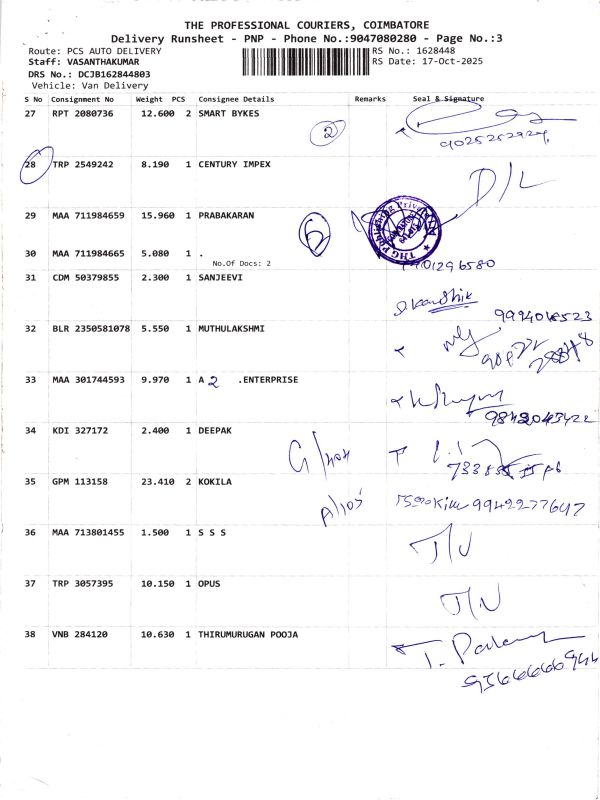 THE PROFESSIONAL COURIERS, COIMBATORE
Delivery Runsheet - PNP - Phone No.:9047080280 - Page No.:3
Route: PCS AUTO DELIVERY RS No.: 1628448
Staff: VASANTHAKUMAR RS Date: 17-Oct-2025
DRS No.: DCJB162844803
Vehicle: Van Delivery
S No Consignment No Weight PCS Consignee Details Remarks Seal & Signature
27 RPT 2080736 12.600 2 SMART BYKES
2
28 TRP 2549242 8.190 1 CENTURY IMPEX
D/L
29 MAA 711984659 15.960 1 PRABAKARAN
THG Publishing Private
30 MAA 711984665 5.080 1 .
No.Of Docs: 2
31 CDM 50379855 2.300 1 SANJEEVI
32 BLR 2350581078 5.550 1 MUTHULAKSHMI
33 MAA 301744593 9.970 1 A 2 .ENTERPRISE
34 KDI 327172 2.400 1 DEEPAK
35 GPM 113158 23.410 2 KOKILA
9942277647
36 MAA 713801455 1.500 1 S S S
37 TRP 3057395 10.150 1 OPUS
38 VNB 284120 10.630 1 THIRUMURUGAN POOJA